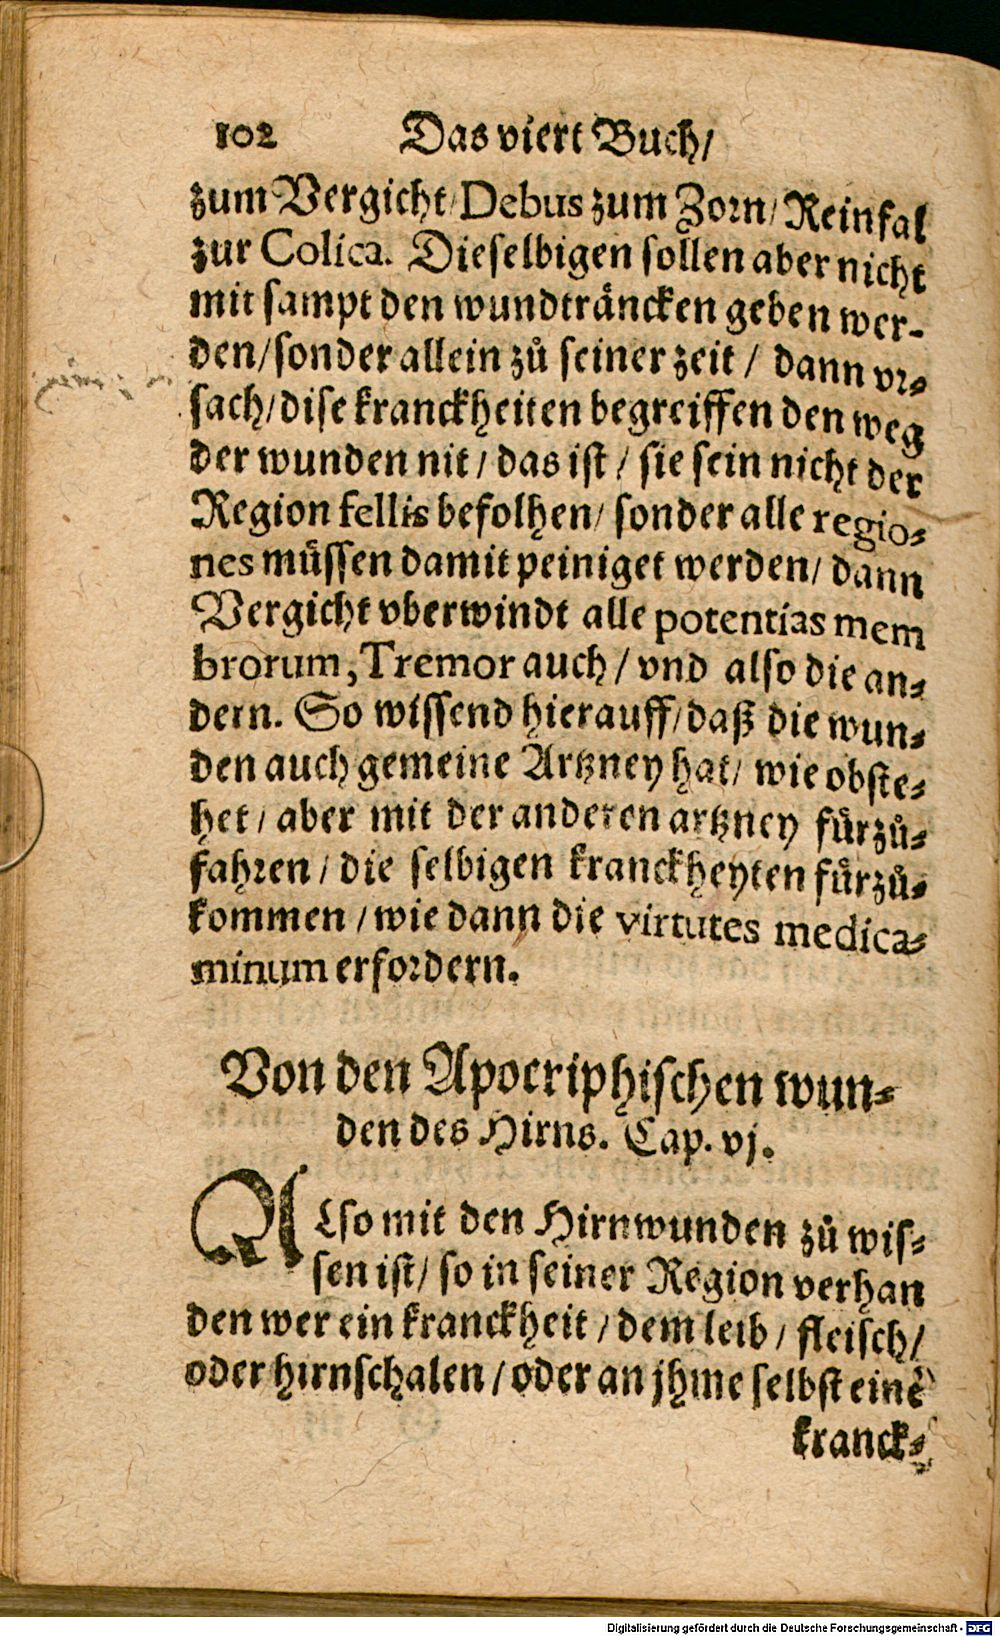 102 Das viert Buch/
zum Vergicht/ Debus zum Zorn/ Reinfal
zur Colica. Dieselbigen sollen aber nicht
mit sampt den wundträncken geben wer-
den/ sonder allein zů seiner zeit / dann vr⸗
sach/ dise kranckheiten begreiffen den weg
der wunden nit / das ist / sie sein nicht der
Region fellis befolhen/ sonder alle regio⸗
nes müssen damit peiniget werden/ dann
Vergicht vberwindt alle potentias mem
brorum, Tremor auch / vnd also die an⸗
dern. So wissend hierauff/ daß die wun⸗
den auch gemeine Artzney hat/ wie obste⸗
het / aber mit der anderen artzney fürzů⸗
fahren / die selbigen kranckheyten fürzů⸗
kommen / wie dann die virtutes medica⸗
minum erfordern.
Von den Apocriphischen wun⸗
den des Hirns. Cap. vj.
Also mit den Hirnwunden zů wis⸗
sen ist/ so in seiner Region verhan
den wer ein kranckheit / dem leib / fleisch/
oder hirnschalen / oder an jhme selbst eine
kranck⸗
Digitalisierung gefördert durch die Deutsche Forschungsgemeinschaft - DFG